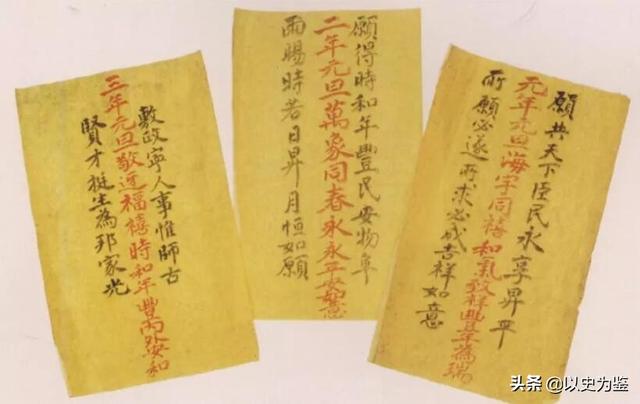 願共天下臣民永享昇平
元年元旦海宇同禧和氣致祥豐年為瑞
所願必遂所求必成吉祥如意
願得時和年豐民安物阜
二年元旦萬象同春永永平安如意
雨暘時若日昇月恒如願
敷政寧人事惟師古
三年元旦敬迓福禧時和年豐內外安和
賢才挺生為邦家光
头条 @以史为鉴